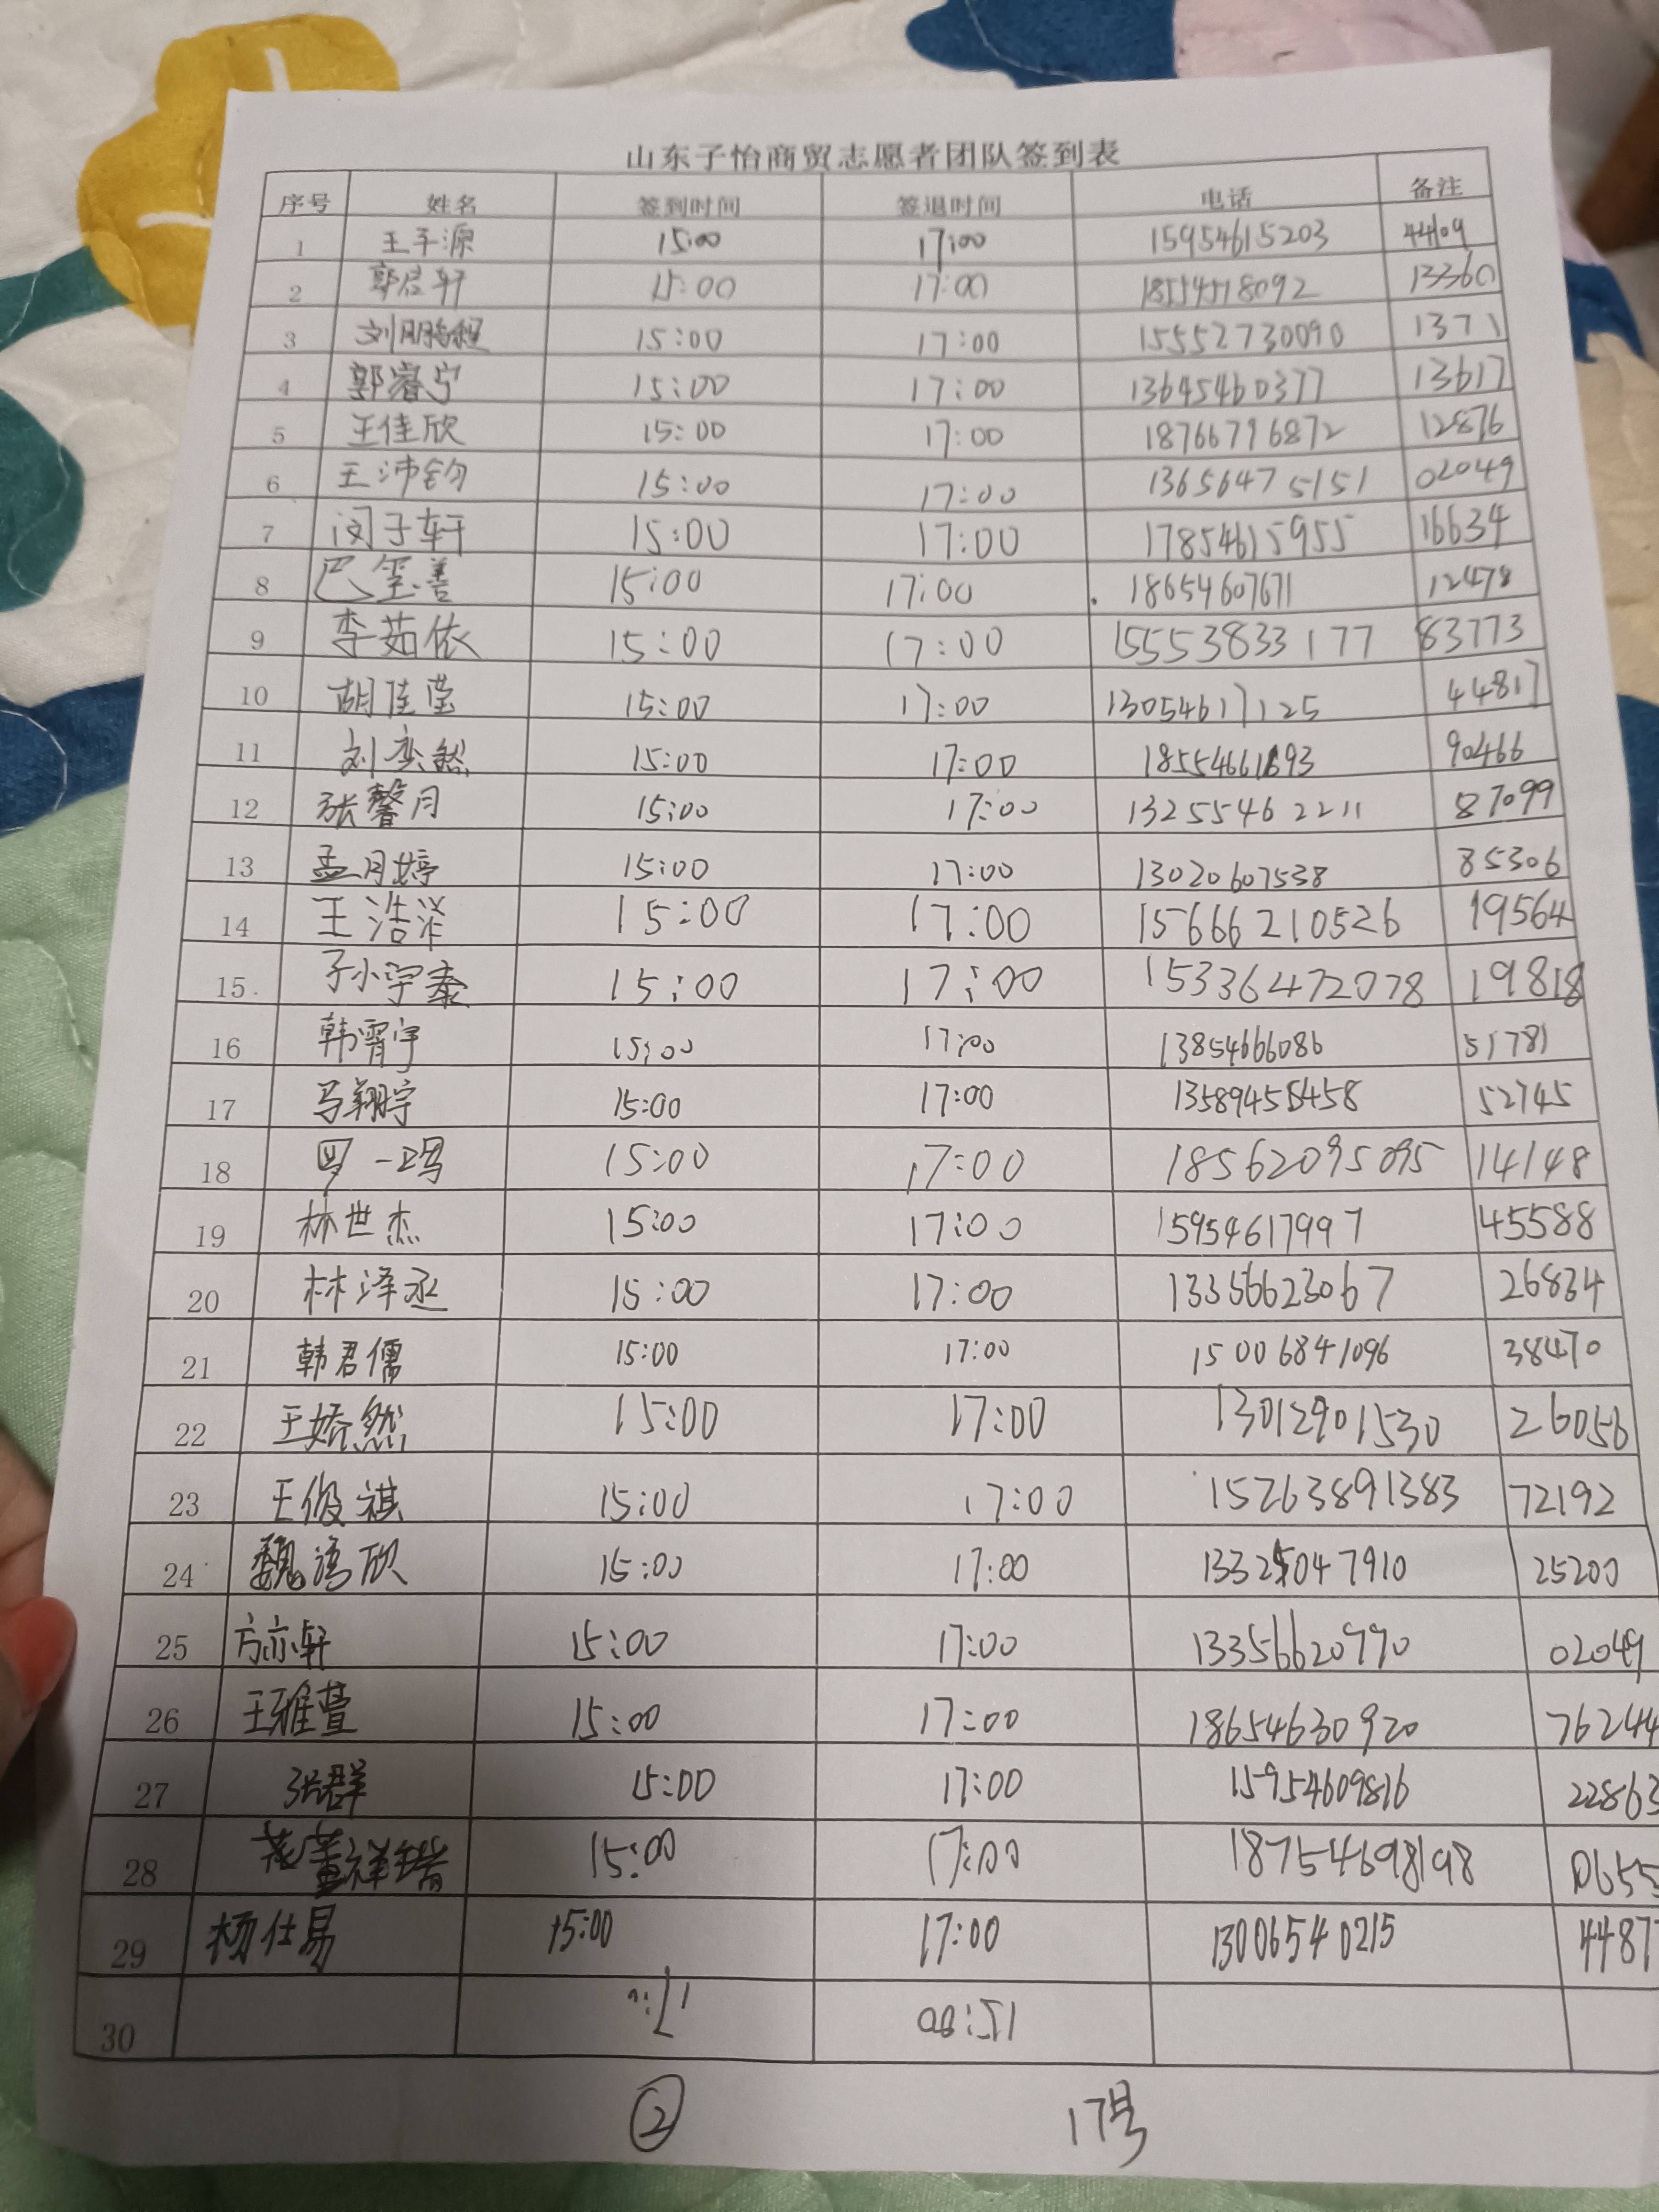 山东子怡商贸志愿者团队签到表
序号 姓名 签到时间 签退时间 电话 备注
1 王子源 15:00 17:00 15954615203 44109
2 郭宸轩 15:00 17:00 18554518092 13360
3 刘鹏程 15:00 17:00 15552730090 1371
4 郭睿宁 15:00 17:00 13645460377 13617
5 王佳欣 15:00 17:00 18766796872 12876
6 王沛钧 15:00 17:00 13656475151 02049
7 闵子轩 15:00 17:00 17854615955 16634
8 巴玺善 15:00 17:00 18654607671 12478
9 李茹依 15:00 17:00 15553833177 83773
10 胡佳莹 15:00 17:00 13054617125 44817
11 刘奕然 15:00 17:00 90466
12 张馨月 15:00 17:00 13255462211 87099
13 孟月婷 15:00 17:00 13020607538 85306
14 王浩洋 15:00 17:00 156666210526 19564
15 孙宇泰 15:00 17:00 15336472078 19818
16 韩霄宇 15:00 17:00 13854666086 51781
17 马翔宇 15:00 17:00 52745
18 罗一玛 15:00 17:00 18562095095 14148
19 林世杰 15:00 17:00 15954617997 45588
20 林泽丞 15:00 17:00 13356623067 26834
21 韩君儒 15:00 17:00 15006841096 38470
22 王娇然 15:00 17:00 13012901530 26056
23 王俊祺 15:00 17:00 15263891383 72192
24 魏语欣 15:00 17:00 13325047910 25200
25 方亦轩 15:00 17:00 13356620990 02049
26 王雅萱 15:00 17:00 18654630920 76244
27 张群 15:00 17:00 15954609816 22863
28 董祥瑞 15:00 17:00 18754698198 0655
29 杨仕易 15:00 17:00 13006540215 4487
30 15:00
② 17号